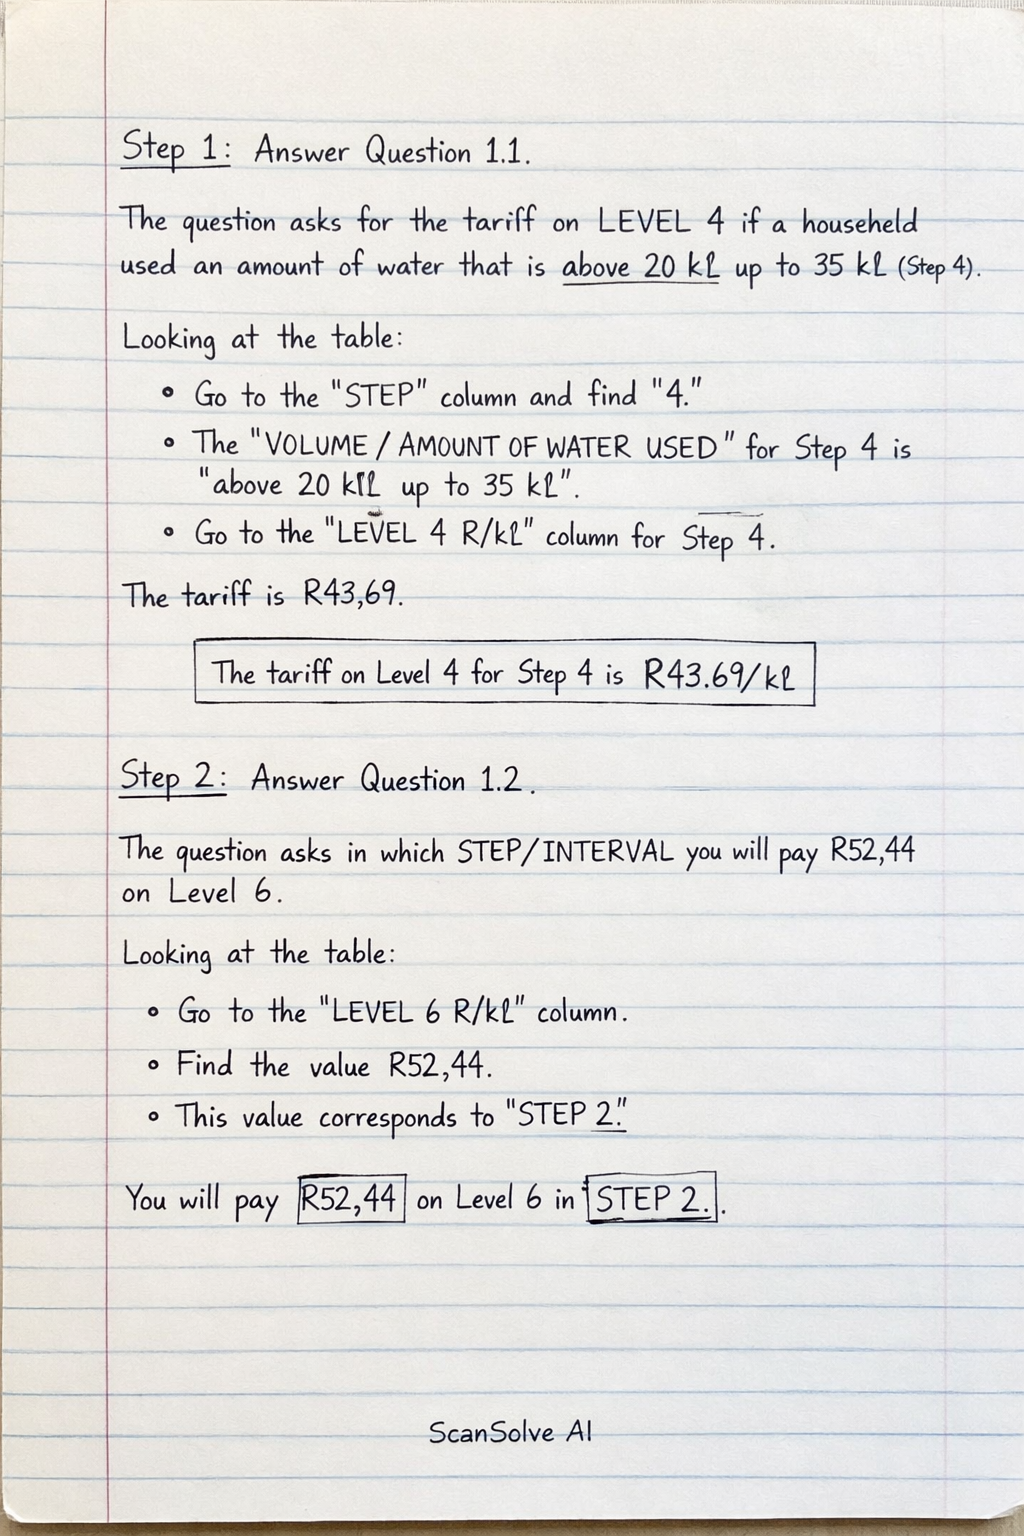 Step 1: Answer Question 1.1.
The question asks for the tariff on LEVEL 4 if a househeld
used an amount of water that is above 20 kl up to 35 kl (Step 4).
Looking at the table:
• Go to the "STEP" column and find "4."
• The "VOLUME / AMOUNT OF WATER USED" for Step 4 is
"above 20 kll up to 35 kl".
• Go to the "LEVEL 4 R/kl" column for Step 4.
The tariff is R43,69.
The tariff on Level 4 for Step 4 is R43.69/kl
Step 2: Answer Question 1.2.
The question asks in which STEP/INTERVAL you will pay R52,44
on Level 6.
Looking at the table:
• Go to the "LEVEL 6 R/kl" column.
• Find the value R52,44.
• This value corresponds to "STEP 2."
You will pay R52,44 on Level 6 in STEP 2..
ScanSolve AI